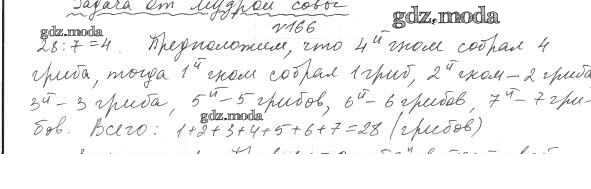 Задача от мудрой совы
№166
gdz.moda
gdz.moda
28:7=4. Предположим, что 4ый гном собрал 4
гриба, тогда 1ый гном собрал 1 гриб, 2ый гном – 2 гриба
3ый – 3 гриба, 5ый – 5 грибов, 6ый – 6 грибов, 7ый – 7 гри-
gdz.moda
бов. Всего: 1+2+3+4+5+6+7=28 (грибов)